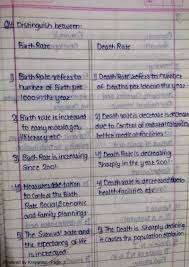 Q4 Distinguish between:
Birth Rate
Death Rate
1) Birth Rate refers to
number of Birth per
1000 in the year
1) Death Rate refers to number
of Deaths per 1000 in the year.
2) Birth rate is increased
to early marriages,
illiteracy etc
2) Death rate is decrease
due to control of
better medical facilities
3) Birth Rate is increasing
Since 2001.
3) Death Rate is decreasing
Sharply in the year 2001
4) Measures are taken
to control the Birth
Rate Social, Economic
and family plannings
4) Death rate is decreased due to
health facilities etc
5) The Survival rate and
the expectancy of life
is increased.
5) The Death is Sharply declining
it causes the population explosion